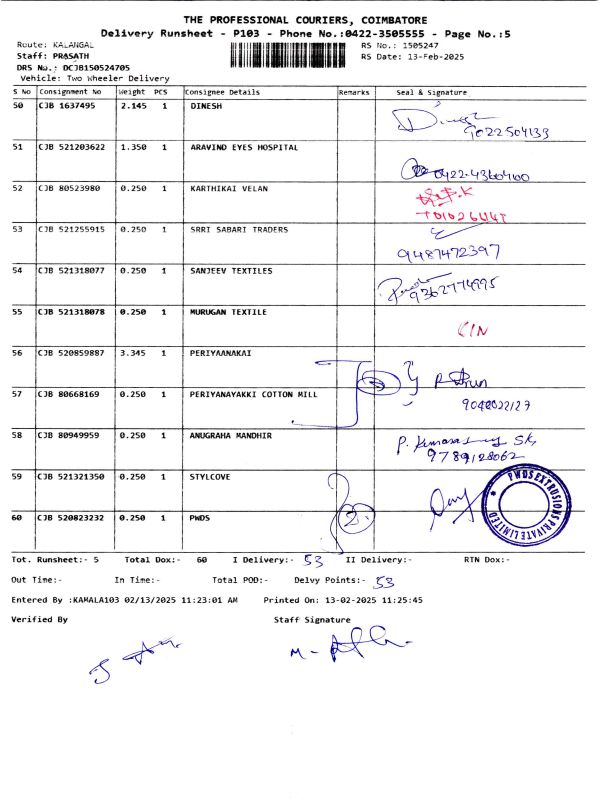 THE PROFESSIONAL COURIERS, COIMBATORE
Delivery Runsheet - P103 - Phone No.:0422-3505555 - Page No.:5
Route: KALANGAL RS No.: 1505247
Staff: PRASATH RS Date: 13-Feb-2025
DRS No.: DCJB150524705
Vehicle: Two Wheeler Delivery
S No Consignment No Weight PCS Consignee Details Remarks Seal & Signature
50 CJB 1637495 2.145 1 DINESH
9022504133
51 CJB 521203622 1.350 1 ARAVIND EYES HOSPITAL
0422-4360400
52 CJB 80523980 0.250 1 KARTHIKAI VELAN
53 CJB 521255915 0.250 1 SRRI SABARI TRADERS
9487472397
54 CJB 521318077 0.250 1 SANJEEV TEXTILES
9362774995
55 CJB 521318078 0.250 1 MURUGAN TEXTILE
56 CJB 520859887 3.345 1 PERIYAANAKAI
57 CJB 80668169 0.250 1 PERIYANAYAKKI COTTON MILL
58 CJB 80949959 0.250 1 ANUGRAHA MANDHIR
9789128062
59 CJB 521321350 0.250 1 STYLCOVE
PWDS EXTRUSIONS PRIVATE LIMITED
60 CJB 520823232 0.250 1 PWDS 2
Tot. Runsheet:- 5 Total Dox:- 60 I Delivery:- 53 II Delivery:- RTN Dox:-
Out Time:- In Time:- Total POD:- Delvy Points:- 53
Entered By :KAMALA103 02/13/2025 11:23:01 AM Printed On: 13-02-2025 11:25:45
Verified By Staff Signature